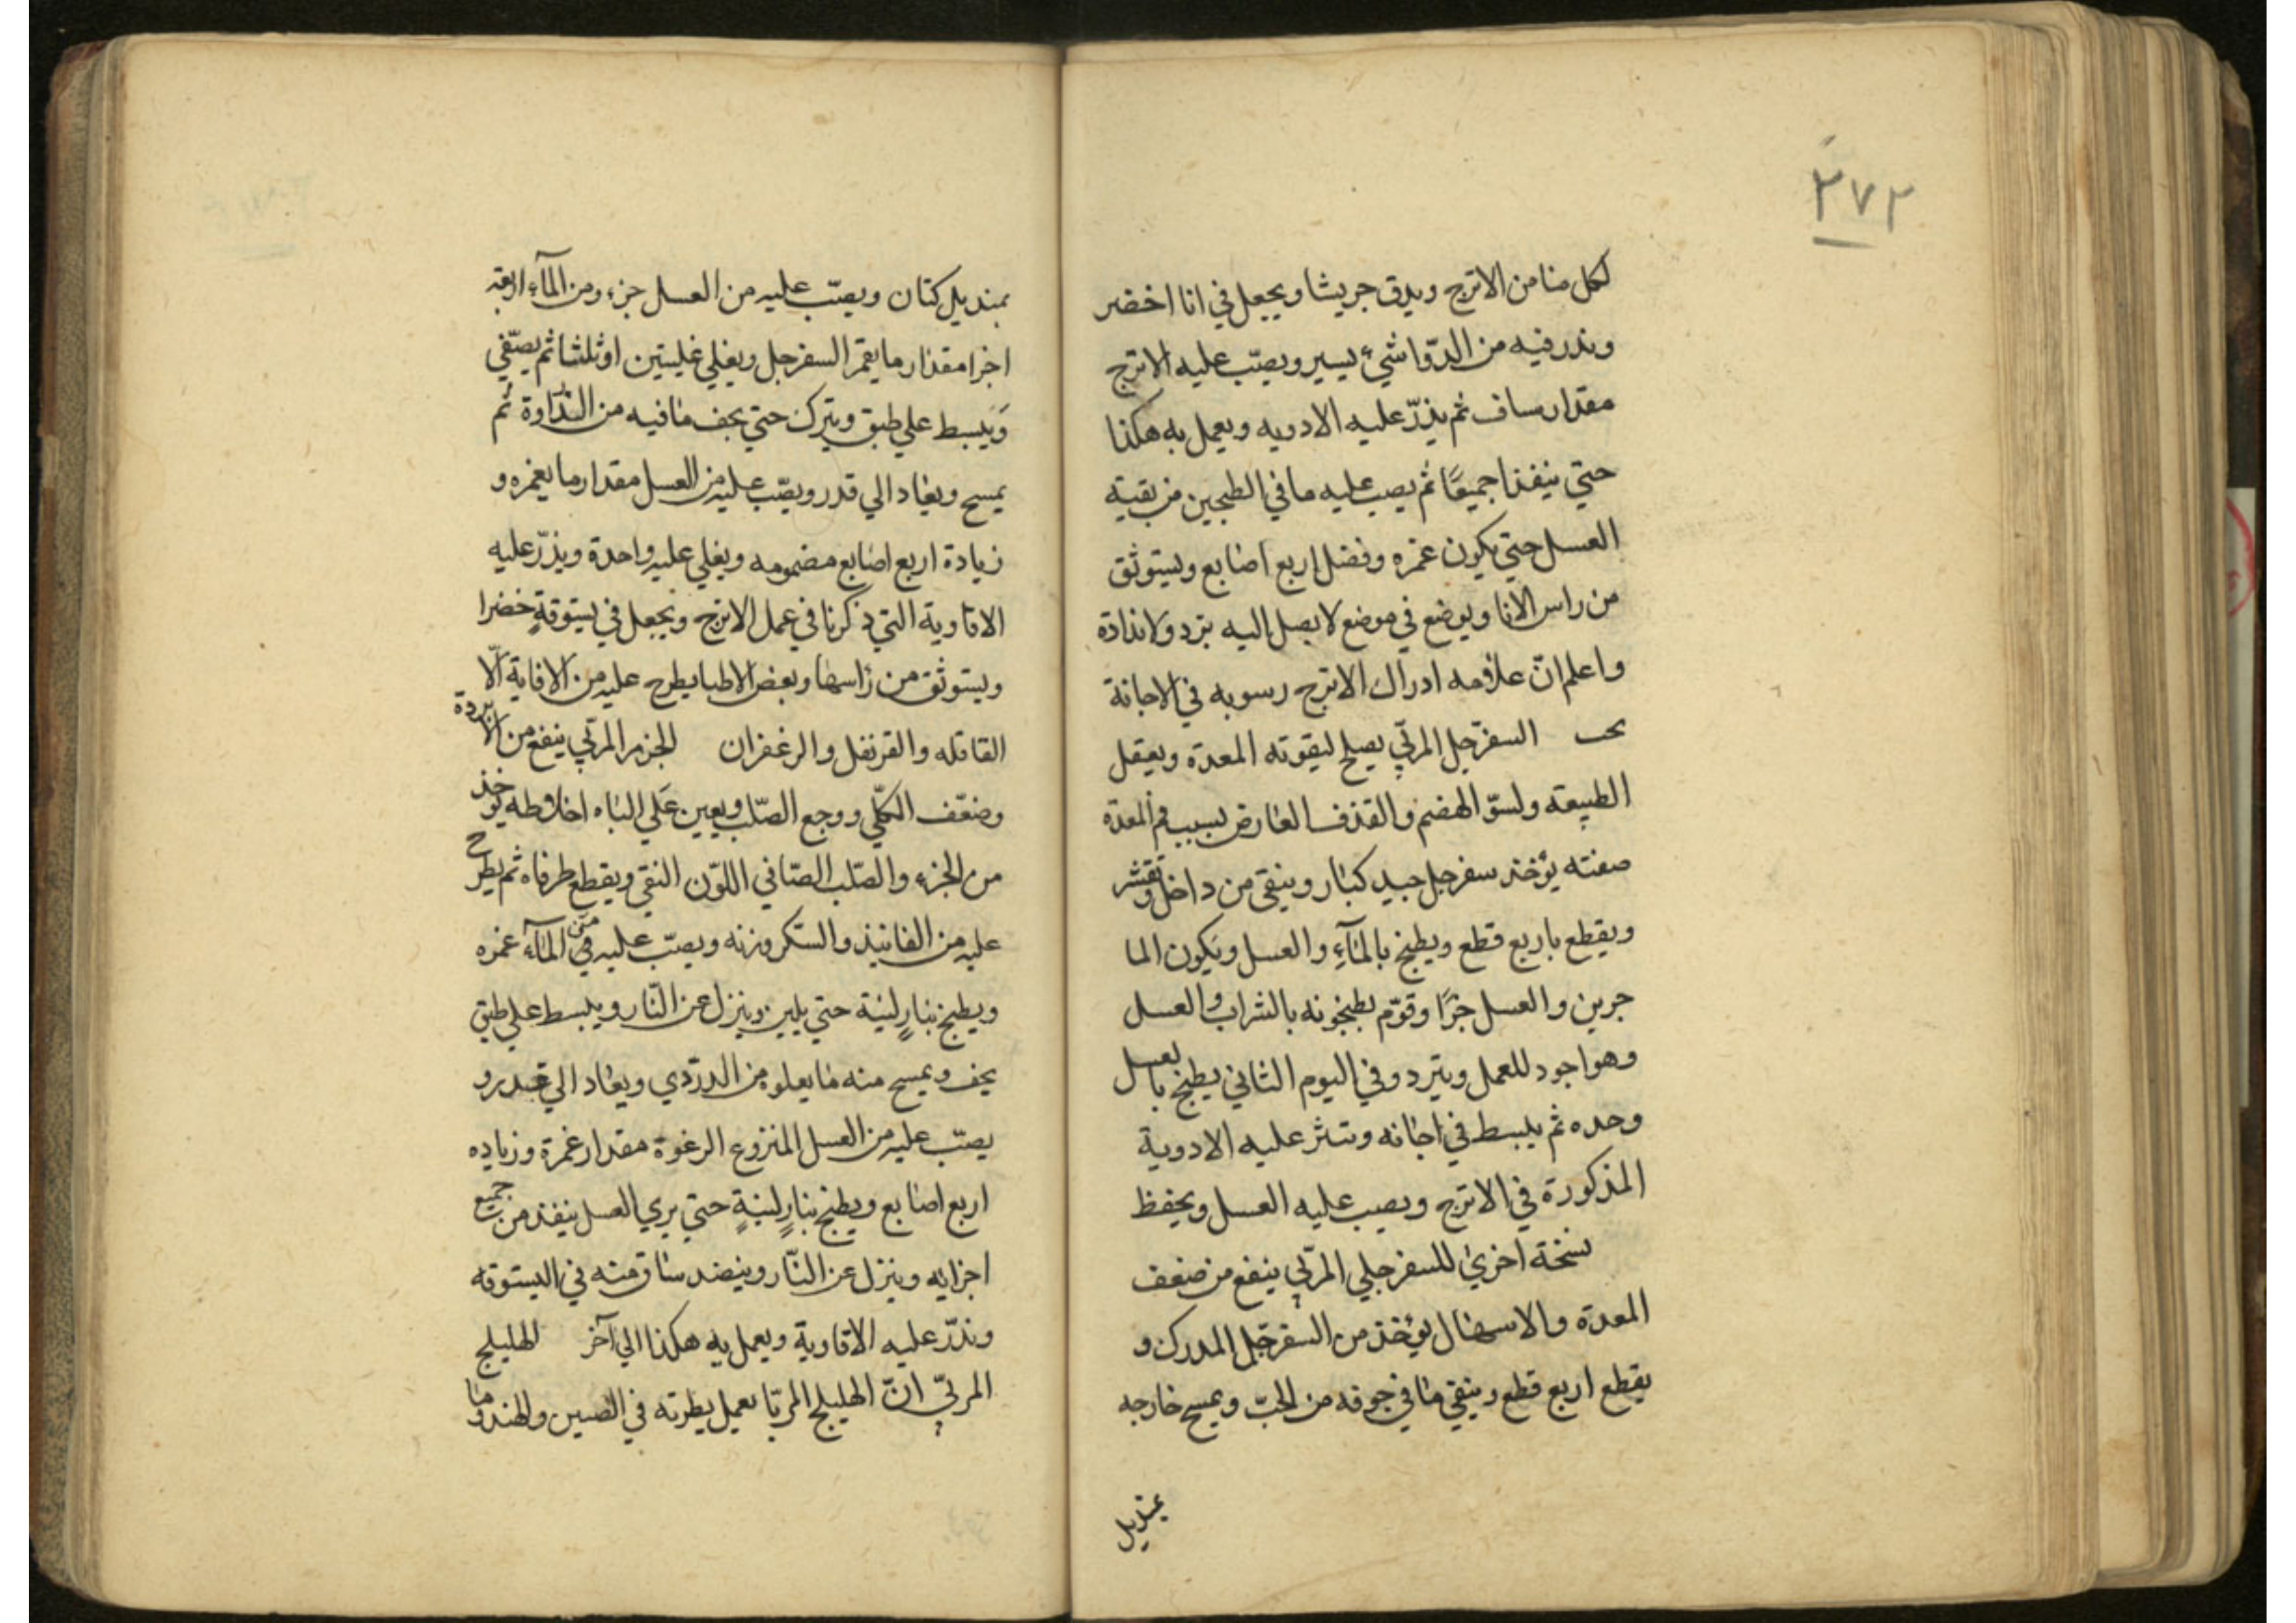 ٢٧٢
لكل منا من الاترج ويدق جريشا ويجعل في انا اخضر
ويذر فيه من الدوا شيء يسير ويصبّ عليه الاترج
مقدار ساف ثم يذرّ عليه الادويه ويعمل به هكذا
حتي ينفذا جميعًا ثم يصب عليه ما في الطبجين من بقية
العسل حتي يكون غمره وفضل اربع اصابع ويستوثق
من راس الانا ويوضع في موضع لا يصل اليه برد ولا نداوة
واعلم انّ علامه ادراك الاترج رسوبه في الاجانة
السفرجل المربّي يصلح ليقوته المعدة ويعقل
الطبيعته ولسوّ الهضم والقذف العارض بسبب فم المعدة
صفته يؤخذ سفرجل جيد كبار وينقي من داخل وتقشر
ويقطع باربع قطع ويطبخ بالمآءِ والعسل ويكون الما
جزين والعسل جزًا وقوّم يطبخونه بالشراب والعسل
وهو اجود للعمل ويترد وفي اليوم الثاني يطبخ بالعسل
وحده ثم يبسط في اجانه وينثر عليه الادوية
المذكورة في الاترج ويصب عليه العسل ويحفظ
نسخة اخري للسفرجلي المربّي ينفع من ضعف
المعدة والاسهال يؤخذ من السفرجل المدرك و
يقطع اربع قطع وينقي ما في جوفه من الحبّ ويمسح خارجه
بمنديل
بمنديل كتان ويصبّ عليه من العسل جزء ومن المآءِ اربعة
اجزا مقدار ما يغمر السفرجل ويغلي غليتين او ثلثا ثم يصفّي
وَيبسط علي طبق ويترك حتي يجف ما فيه من النداوة ثم
يمسح ويعاد الي قدر ويصبّ عليه من العسل مقدار ما يغمره و
زيادة اربع اصابع مضمومه ويغلي عليه واحدة ويذرّ عليه
الافاوية التي ذكرنا في عمل الاترج ويجعل في بستوقةٍ خضرا
ويستوثق من راسها وبعض الاطبا يطرح عليه من الافاية الّا
القاقله والقرنفل والزعفران الجزر المربّي ينفع من الابردة
وضعف الكلّي ووجع الصّلب ويعين عَلي الباه اخلاطه يوخذ
من الجزء والصّلب الصّافي اللوّن النقي ويقطع طرفاه ثم يطرح
عليه من الفانيذ والسكر وزنه ويصبّ عليه من المآءِ غمره
ويطبخ بنارٍ لينة حتي يلين وينزل عن النّار ويبسط علي طبق
يجف ويمسح منه ما يعلو من الدرّدي ويعاد الي قدر و
يصبّ عليه من العسل المنزوع الرغوة مقدار غمرة وزياده
اربع اصابع ويطبخ بنارٍ لينةٍ حتي يري العسل ينفذ من جميع
اجزايه وينزل عن النّار وينضد ساق منه في البستوقه
ويذرّ عليه الافاوية ويعمل به هكذا الي آخر الهليلج
المربّي انّ الهليلج المربّا يعمل بطرته في الصين والهند وما